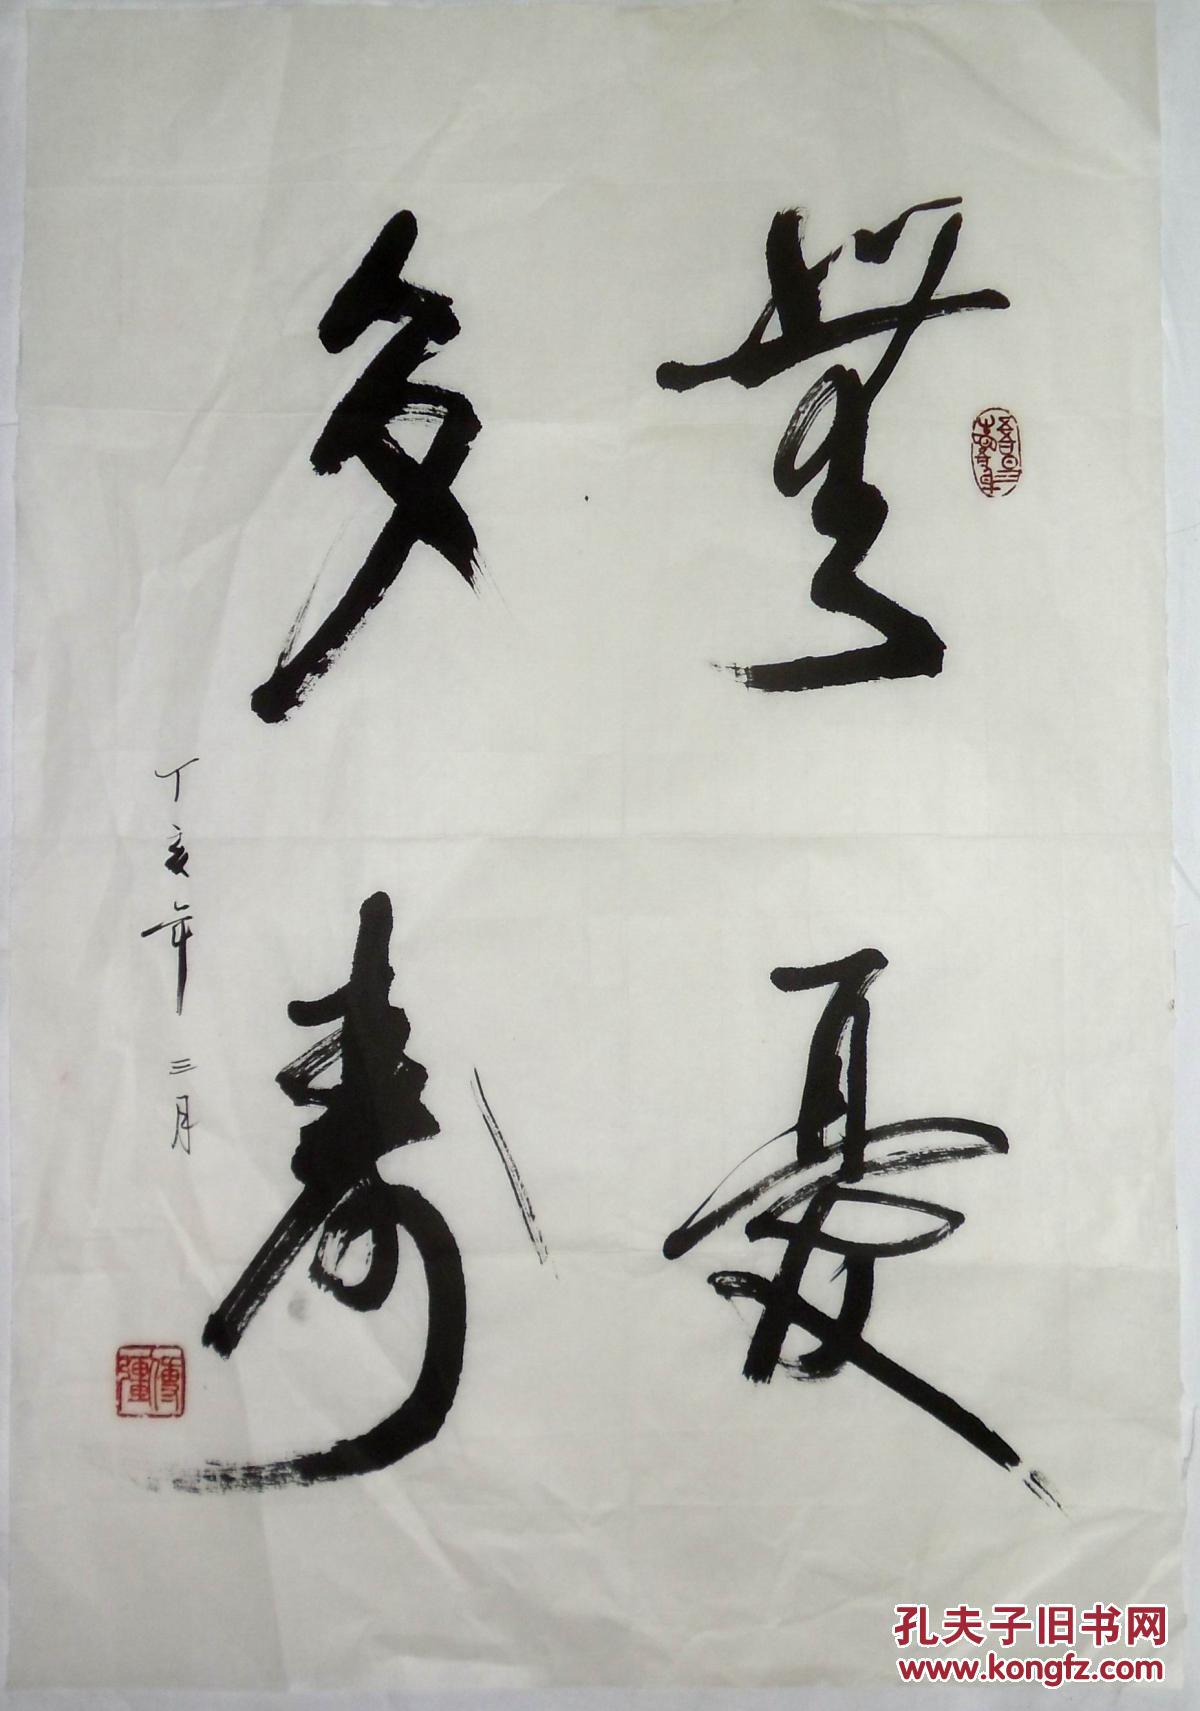 無憂
多壽
丁亥年三月
孔夫子旧书网
www.kongfz.com